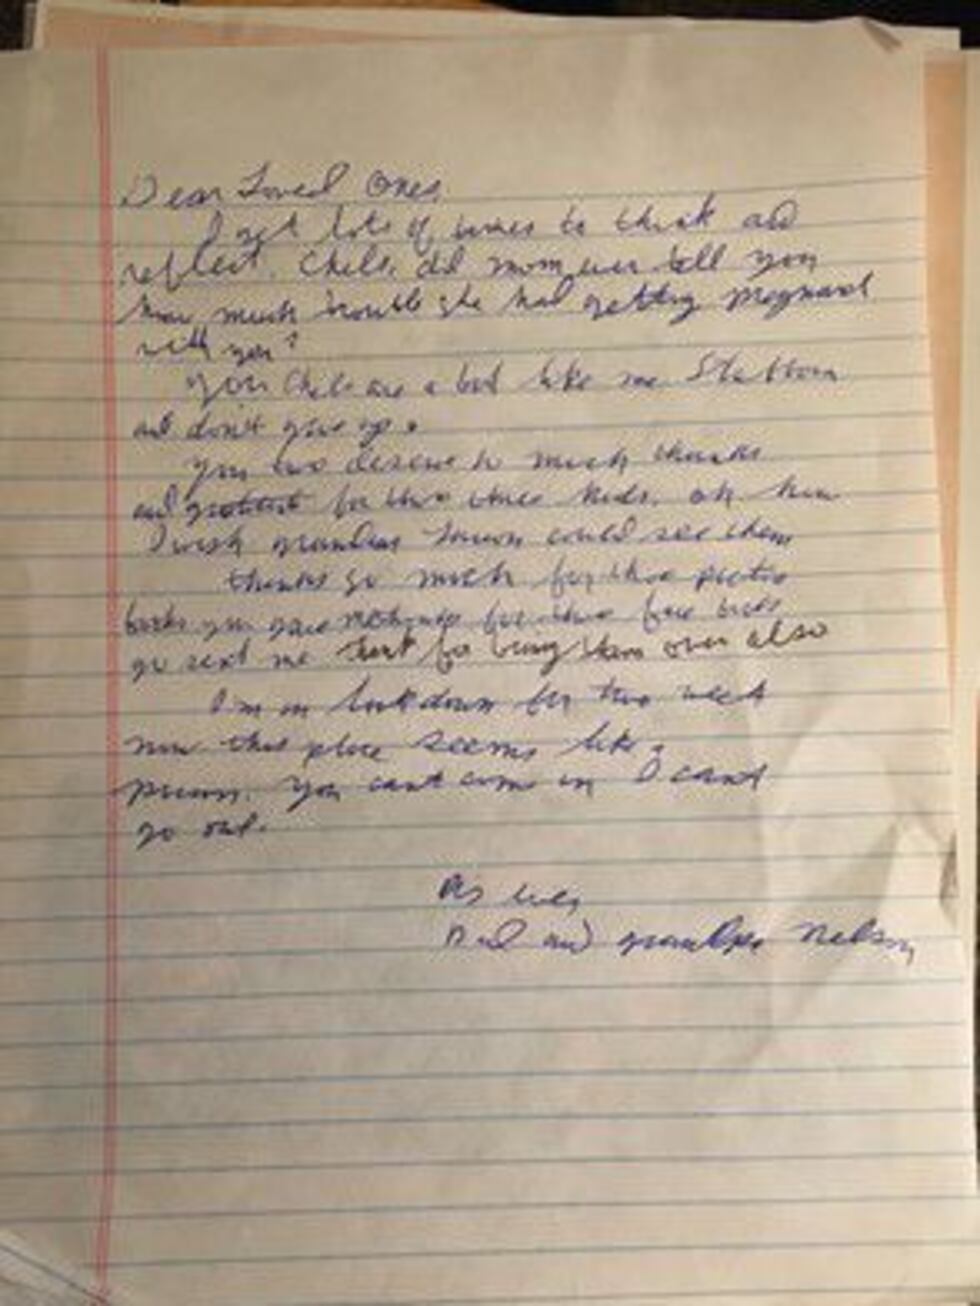 Dear Loved Ones,
I get lots of times to think and
reflect. Chels, did mom ever tell you
how much trouble she had getting pregnant
with you?
You Chels are a bit like me Stubborn
and don't give up.
You two deserve so much thanks
and for kids. oh how
I wish grandma could see them
thanks so much for those
books you gave for those
you sent me for bring them over also
I'm on lockdown for two week
now this place seems like a
prison. You can't come in I cant
go out.
As ever,
Dad and grandpa Nelson